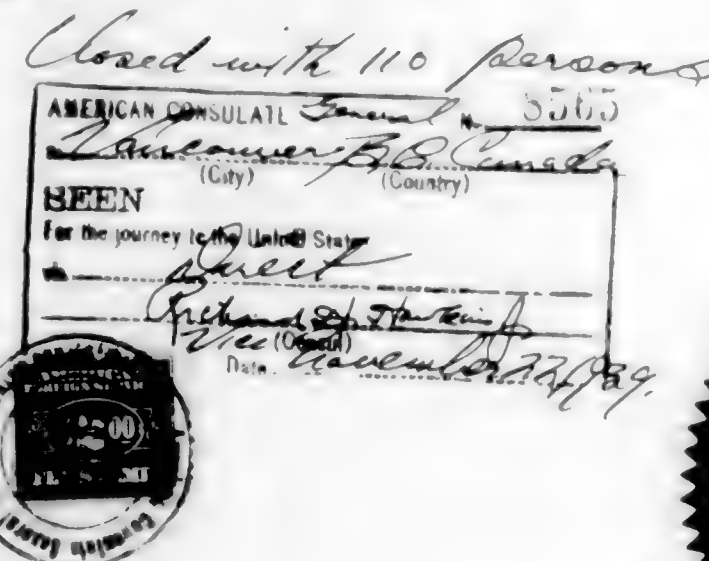 Closed with 110 persons
AMERICAN CONSULATE General No. 5565
Vancouver B.C. Canada
(City) (Country)
SEEN
For the journey to the United States
via direct
Richard D. Hawkins Jr
Vice (Consul)
Date. November 22, 1939.
AMERICAN
FOREIGN SERVICE
00
Consulate General